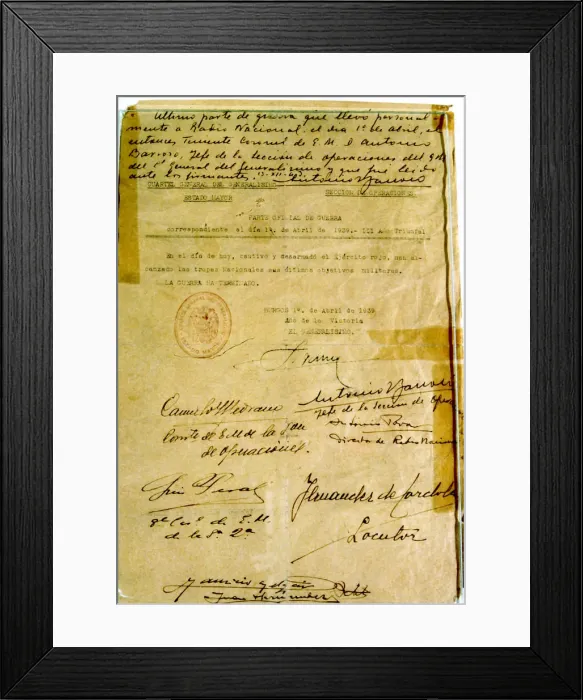 Ultimo parte de guerra que llevó personal
mente a Radio Nacional, el dia 1º de Abril, el
entonces Teniente Coronel de E.M. D. Antonio
Barroso, Jefe de la Sección de operaciones del
del General del Generalisimo y que fue leido
ante los firmantes.
CUARTEL GENERAL DEL GENERALISIMO
SECCION DE OPERACIONES
ESTADO MAYOR
PARTE OFICIAL DE GUERRA
correspondiente al día 1º. de Abril de 1939.- III Año Triunfal
En el día de hoy, cautivo y desarmado el Ejército rojo, han al-
canzado las tropas Nacionales sus últimos objetivos militares.
LA GUERRA HA TERMINADO.
BURGOS 1º. de Abril de 1939
Año de la Victoria
EL GENERALISIMO.
Antonio Barroso
Jefe de la Seccion de
Camilo
Comte de E.M. de la
de Operaciones.
Director de Radio Nacional
Luis
Fernandez de Cordoba
de E. M.
de la 2ª
Locutor
Juan Hernandez